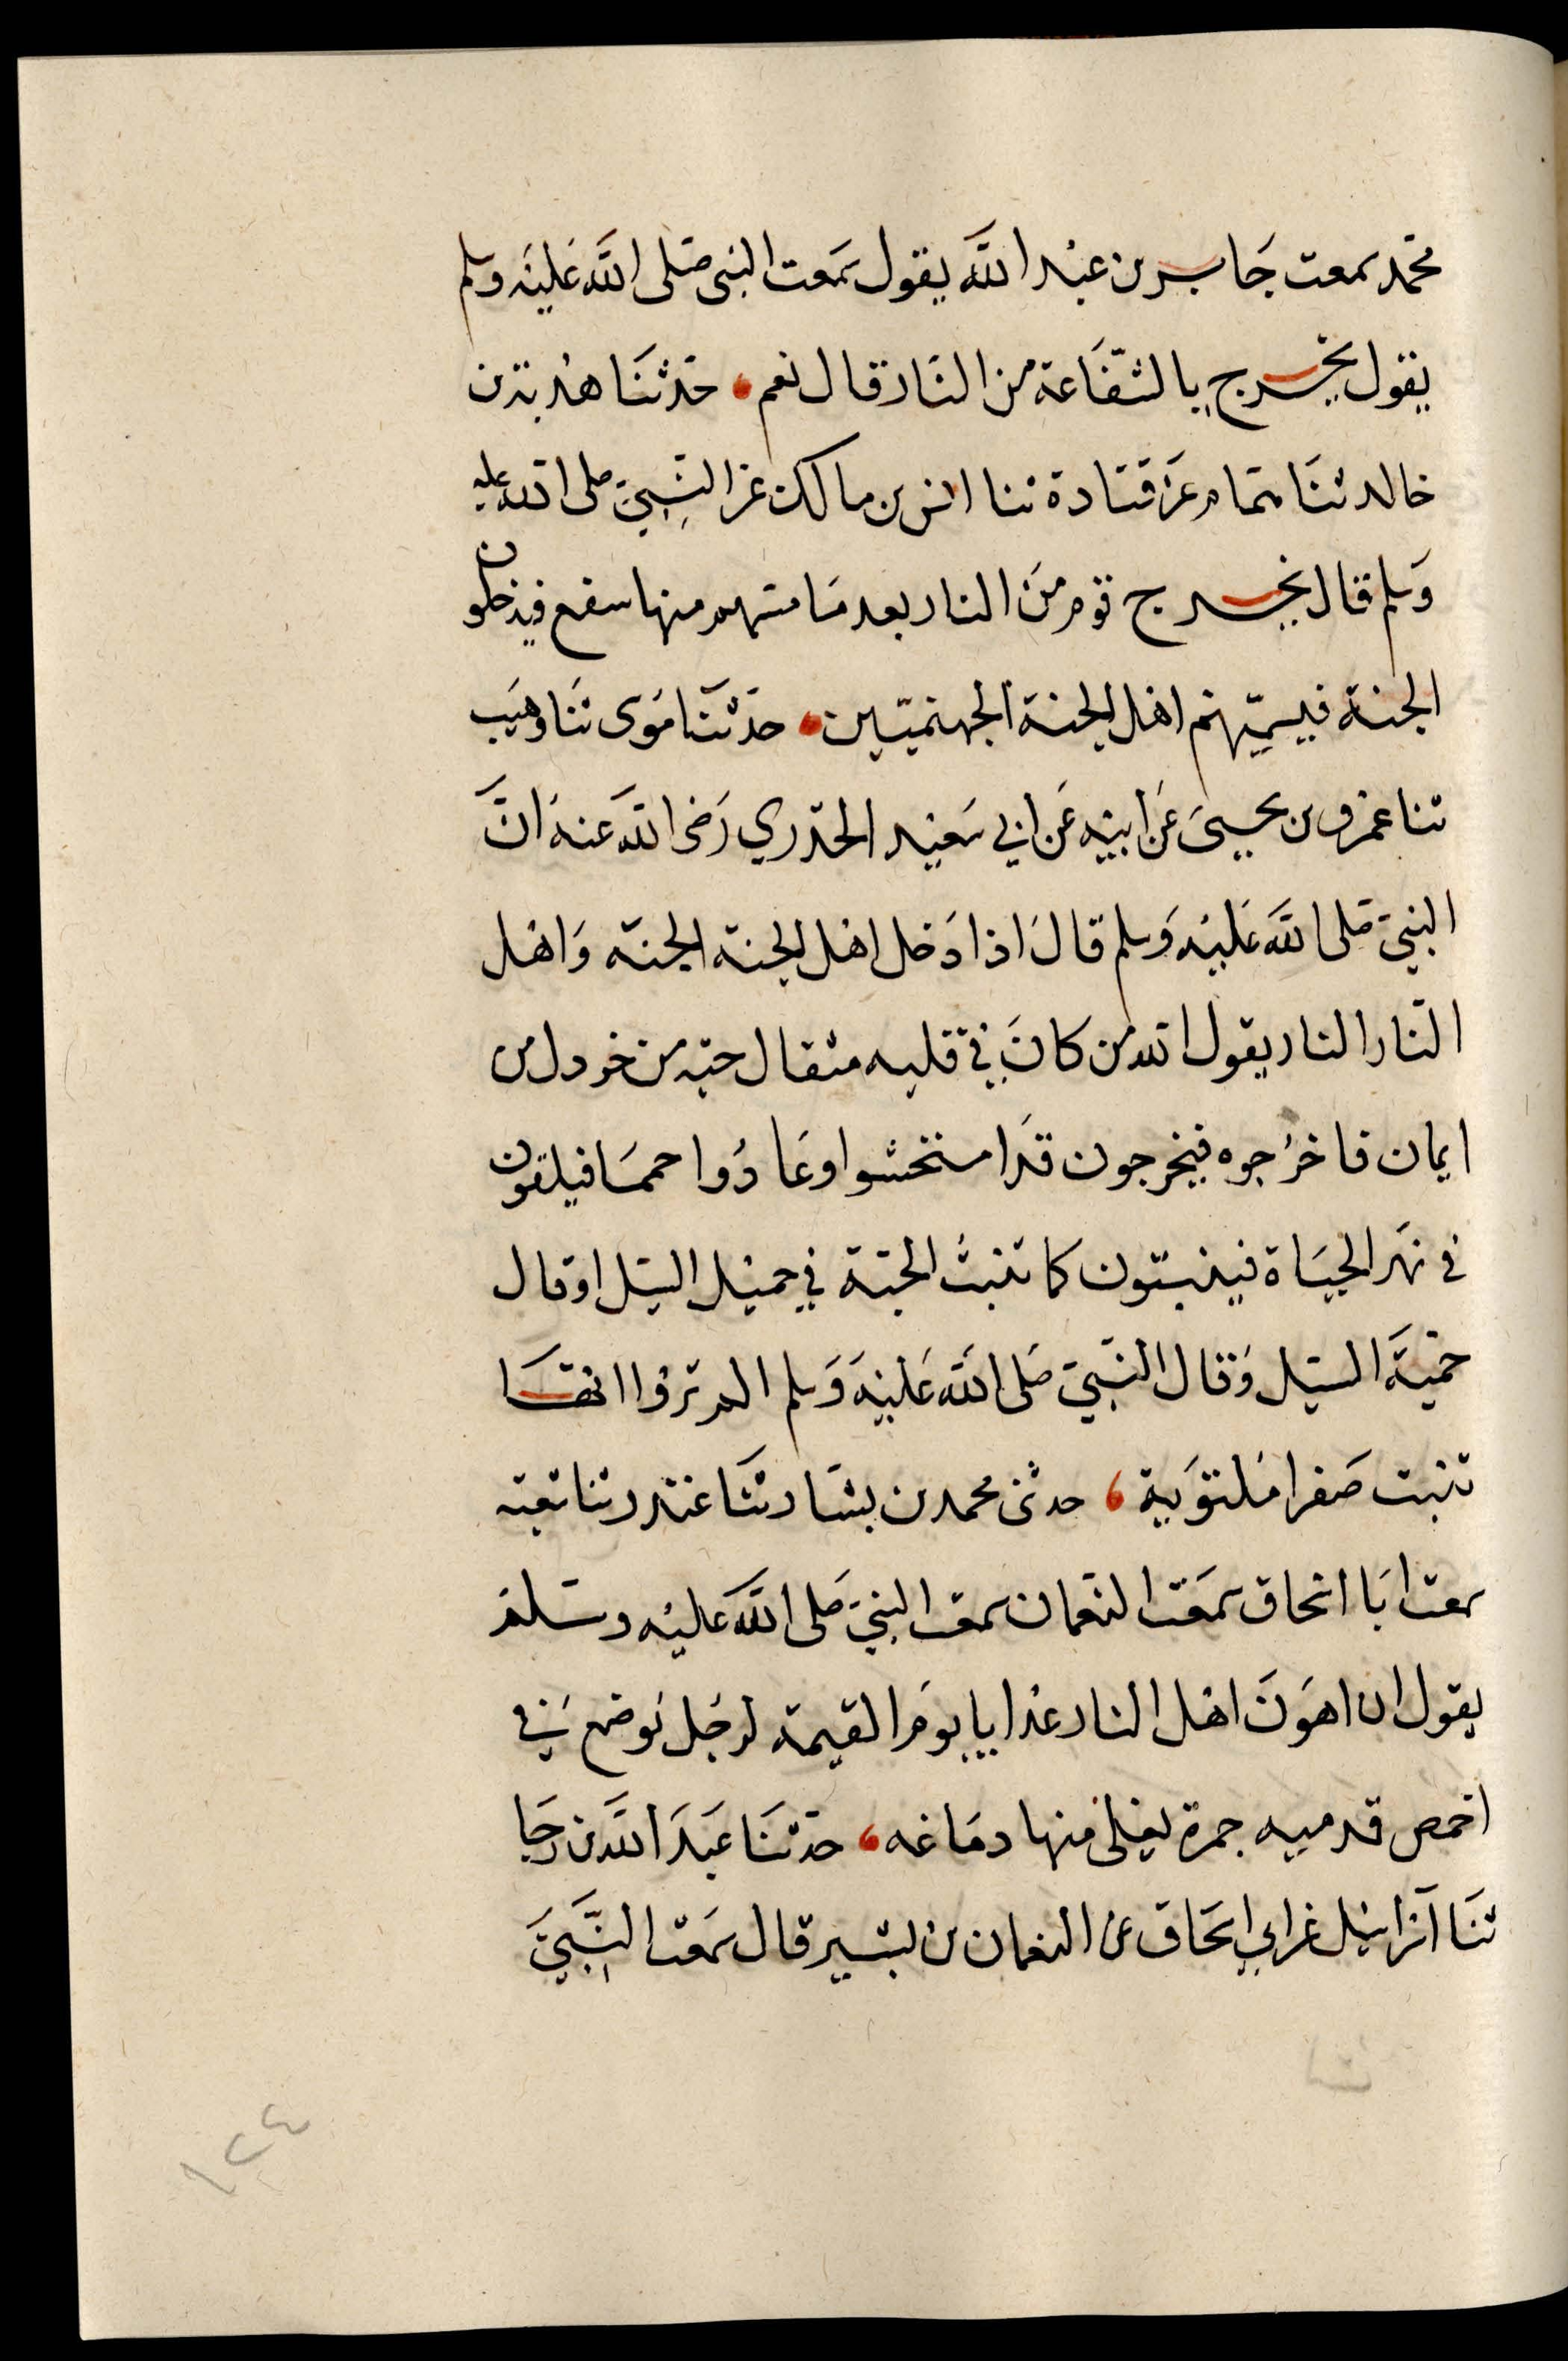 محمد سمعت جابر بن عبد الله يقول سمعت النبى صلى الله عليه وسلم
يقول يخرج بالشفاعة من النار قال نعم، حدثنا هدبة بن
خالد ثنا همام عن قتادة ثنا انس بن مالك عن النبي صلى الله عليه
وسلم قال يخرج قوم من النار بعد ما مسهم منها سفع فيدخلون
الجنة فيسميهم اهل الجنة الجهنميين، حدثنا موسى ثنا وهيب
ثنا عمرو بن يحيى عن ابيه عن ابي سعيد الخدري رضى الله عنه ان
النبي صلى الله عليه وسلم قال اذا دخل اهل الجنة الجنة واهل
النار النار يقول الله من كان في قلبه مثقال حبة من خردل من
ايمان فاخرجوه فيخرجون قد امتحشوا وعادوا حمما فيلقون
في نهر الحياة فينبتون كما تنبت الحبة في حميل السيل او قال
حمية السيل وقال النبي صلى الله عليه وسلم الم تروا انها
تنبت صفرا ملتوية، حدثنى محمد بن بشار ثنا غندر ثنا شعبة
سمعت ابا اسحاق سمعت النعمان سمعت النبي صلى الله عليه وسلم
يقول ان اهون اهل النار عذابا يوم القيمة لرجل توضع في
اخمص قدميه جمرة يغلى منها دماغه، حدثنا عبد الله بن رجا
ثنا اسرائيل عن ابي اسحاق عن النعمان بن بشير قال سمعت النبي
١٢٤